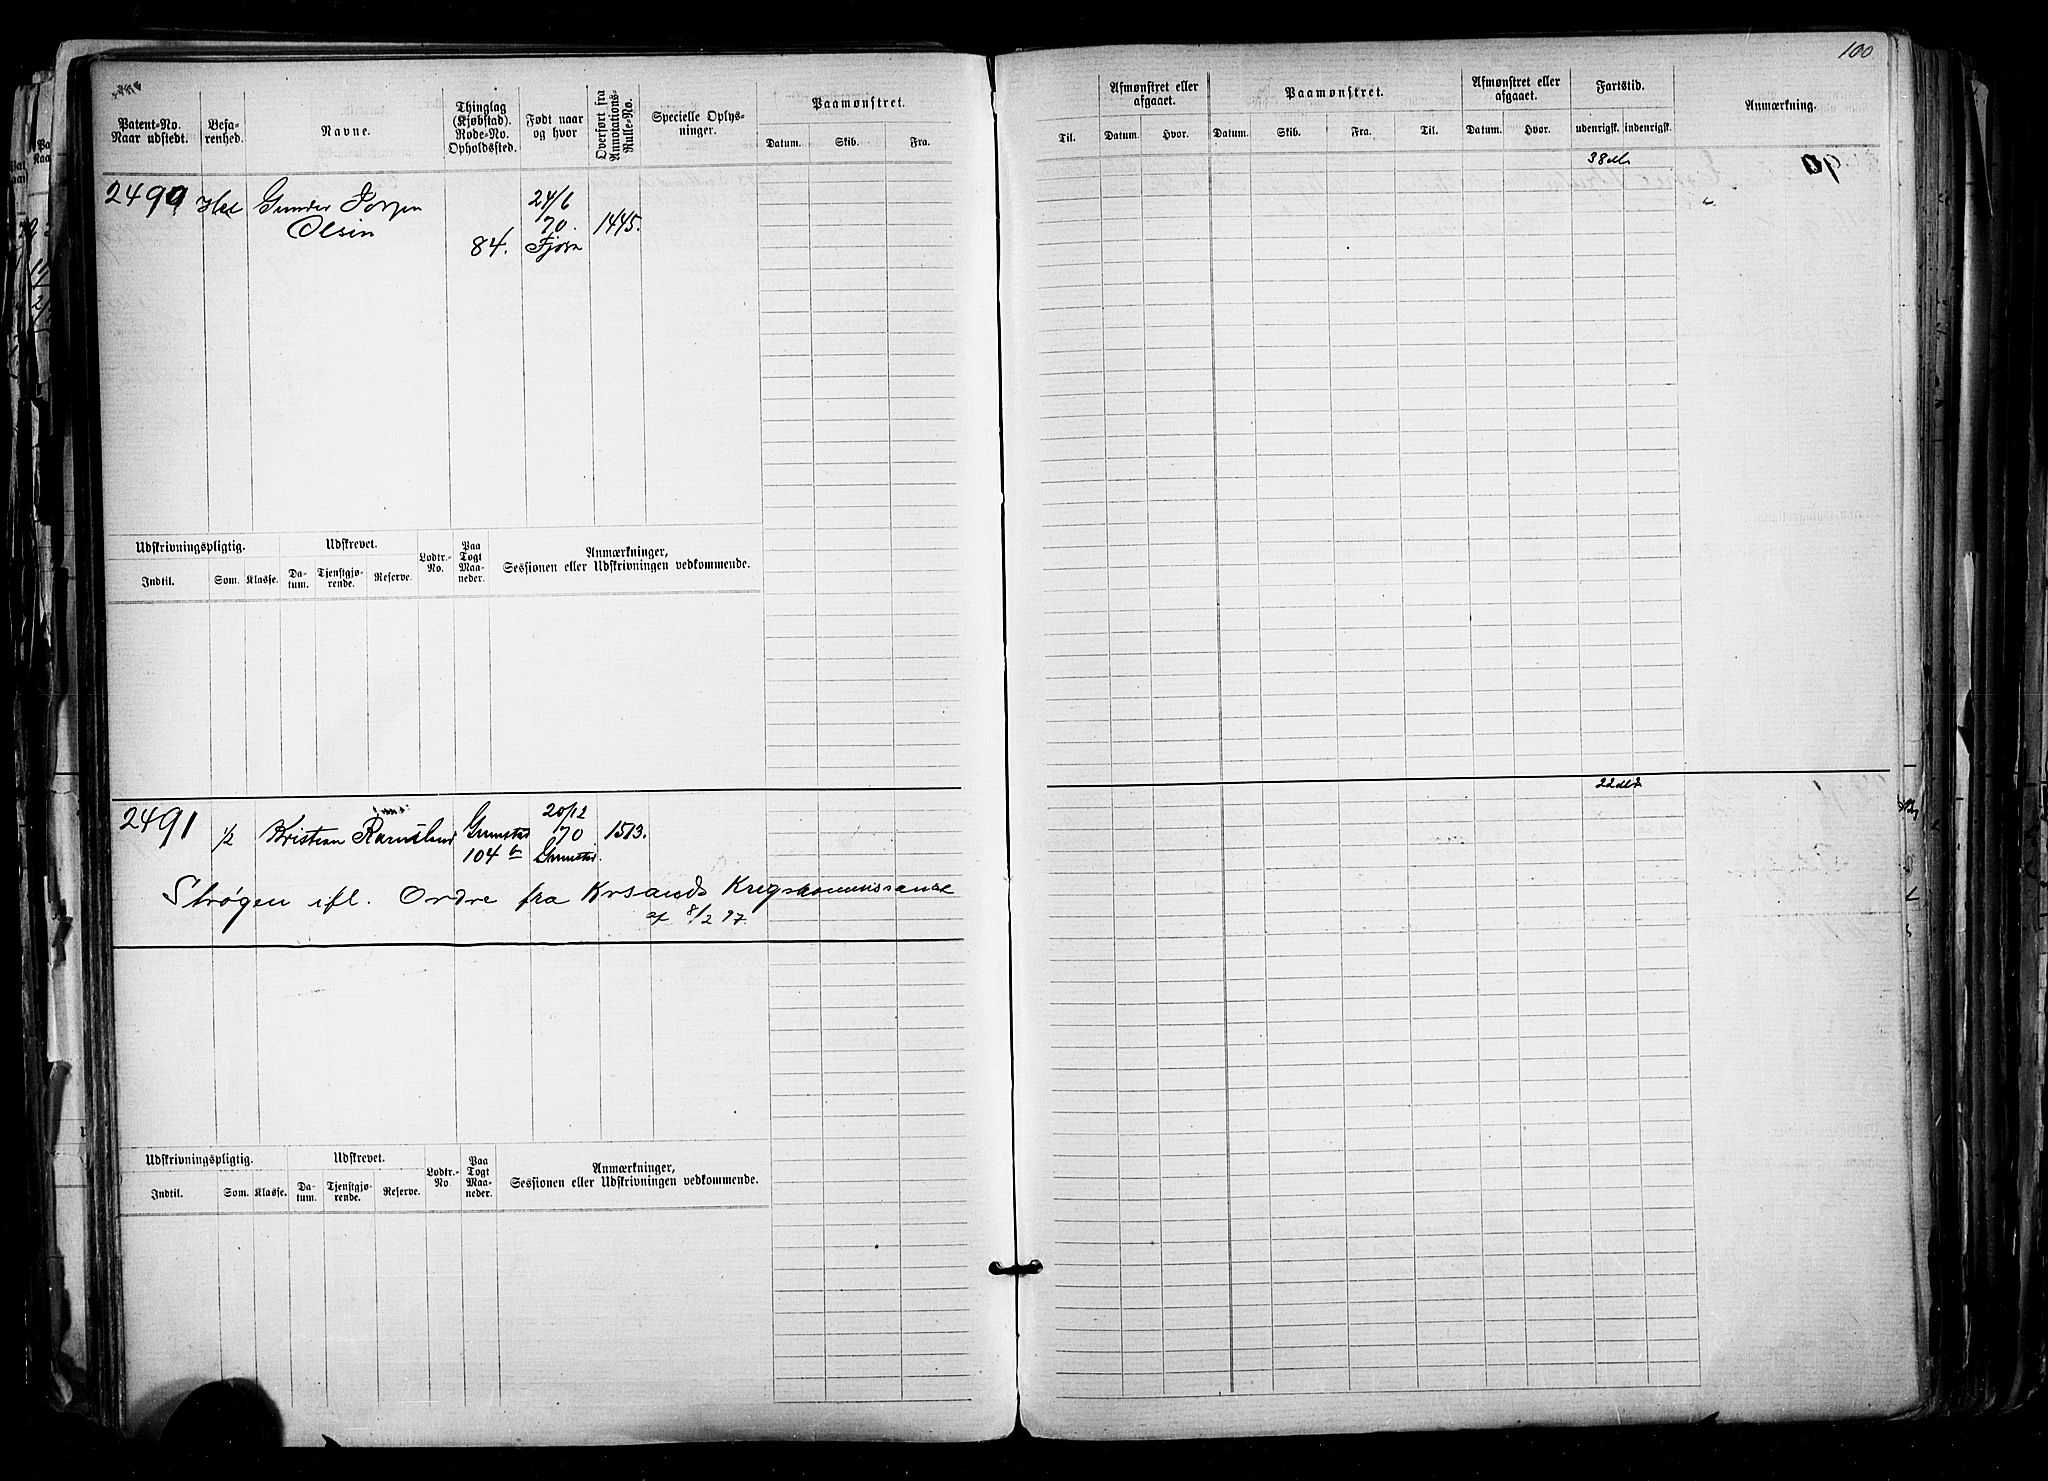 100
Patent-No. Naar udstedt.
Befarenhed.
Navne.
Thinglag (Kjøbstad). Rode-No. Opholdssted.
Født naar og hvor
Overført fra Annotations-Rulle-No.
Specielle Oplysninger.
Paamønstret.
Datum. Skib. Fra.
Til.
Afmønstret eller afgaaet.
Datum. Hvor.
Paamønstret.
Datum. Skib. Fra. Til.
Afmønstret eller afgaaet.
Datum. Hvor.
Fartstid.
udenrigsk. indenrigsk.
Anmærkning.
2490 Hel Gunder Jørgen 24/6
Olsen 70. 1445.
84. Fjære
38
90
Udskrivningspligtig. Udskrevet. Lodtr.-No. Paa Togt Maaneder. Anmærkninger,
Sessionen eller Udskrivningen vedkommende.
Indtil. Som. Klasse. Datum. Tjenstgjørende. Reserve.
2491 1/2 Kristian Ramsland Grimstad 20/12
70 1513.
104 b Grimstad.
22
Strøgen ifl. Ordre fra Krsands Krigskommissariat
af 8/2 97.
Udskrivningspligtig. Udskrevet. Lodtr.-No Paa Togt Maaneder. Anmærkninger,
Sessionen eller Udskrivningen vedkommende.
Indtil. Som. Klasse. Datum. Tjenstgjørende. Reserve.